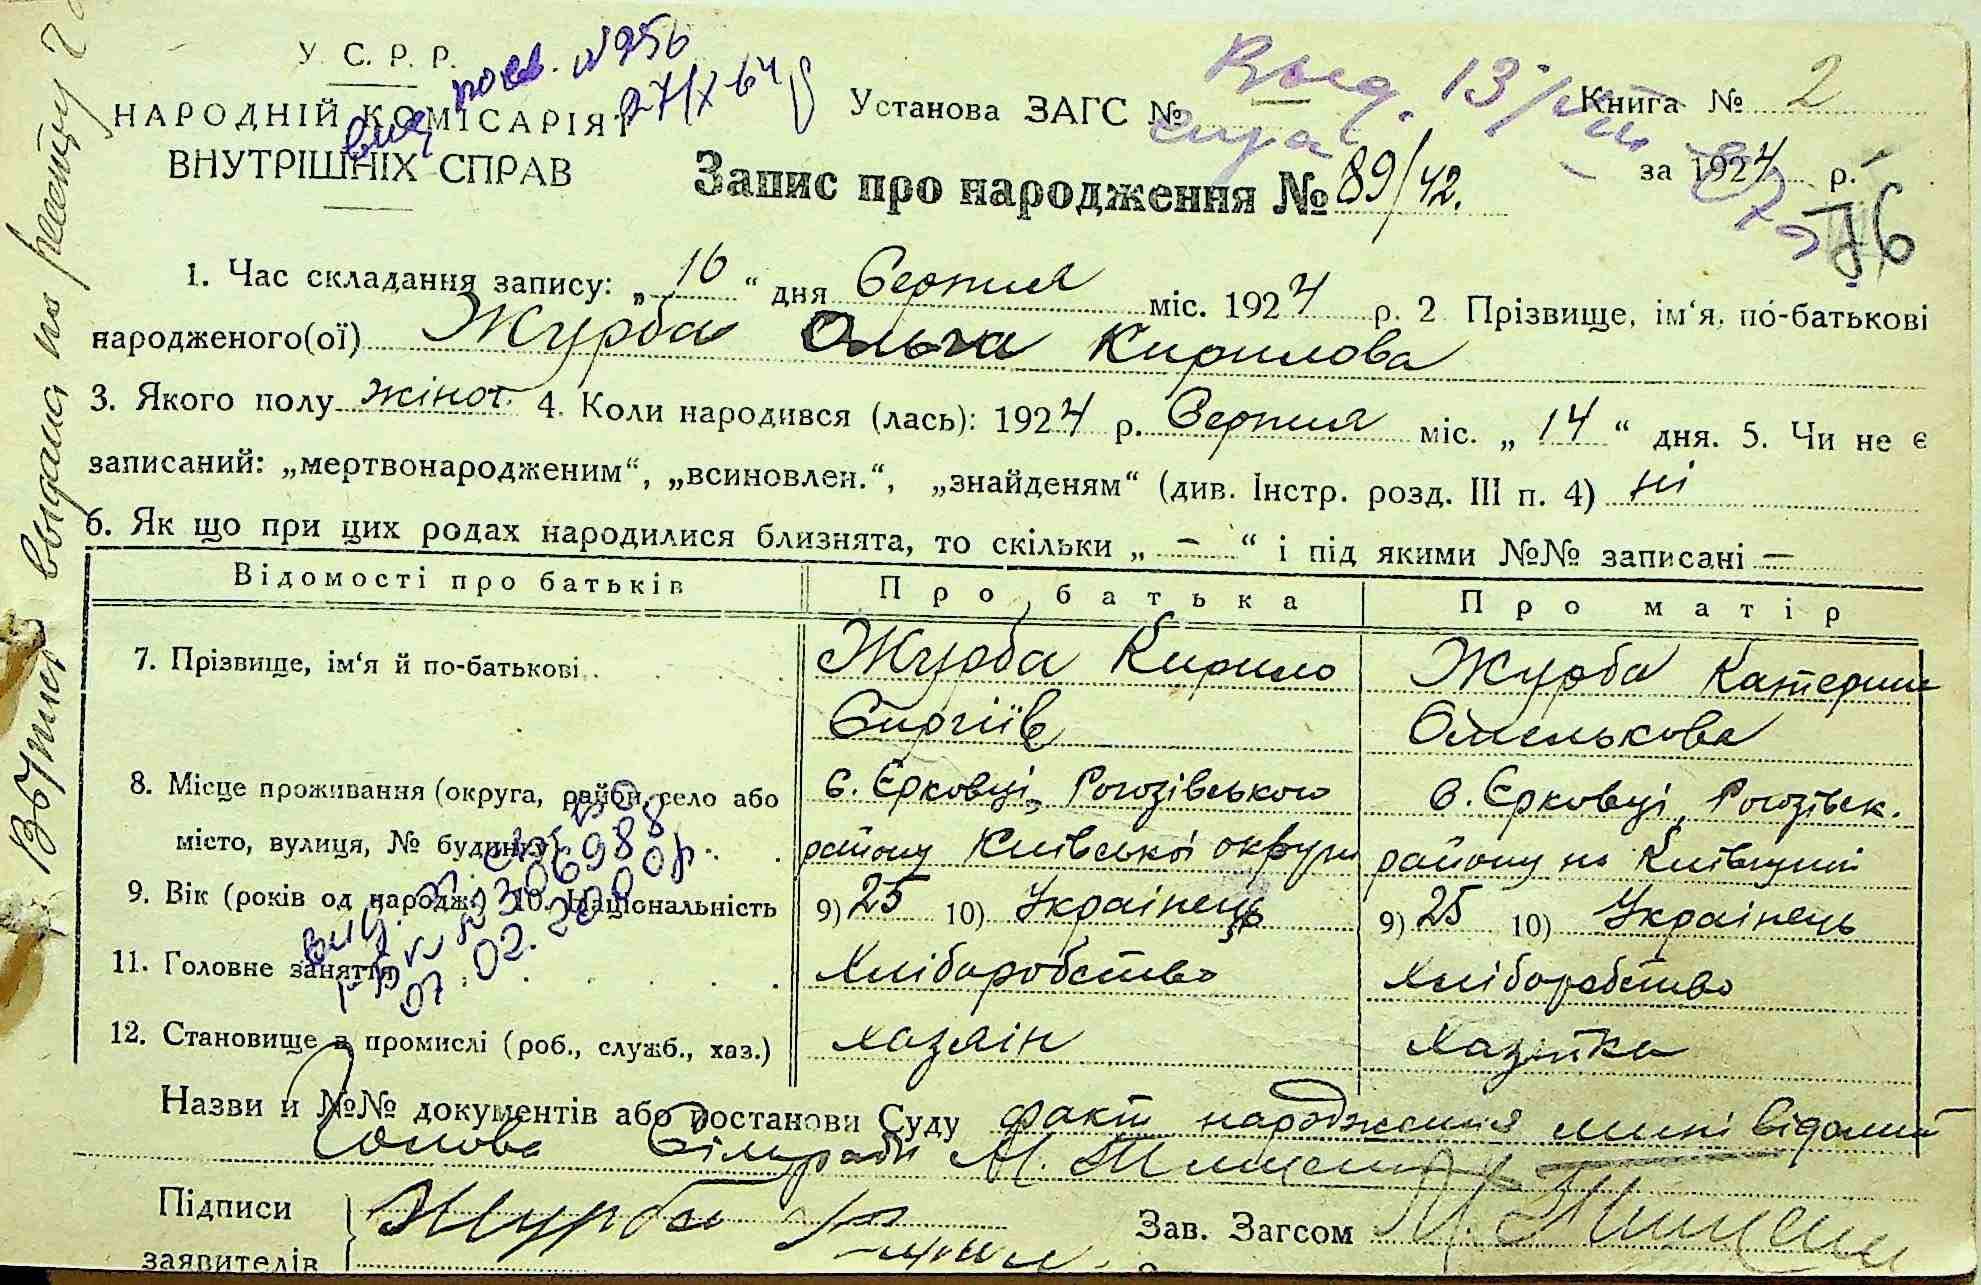 У. С. Р. Р.
НАРОДНІЙ КОМІСАРІЯТ
ВНУТРІШНІХ СПРАВ
посв. №956
27/X 64
Установа ЗАГС №
Книга № 2
за 1924 р.
Запис про народження № 89/42.
76
1. Час складання запису: „16“ дня Серпня міс. 1924 р. 2 Прізвище, ім‘я, по-батькові
народженого(ої) Журба Ольга Кирилова
3. Якого полу жіноч. 4. Коли народився (лась): 1924 р. Серпня міс. „14“ дня. 5. Чи не є
записаний: „мертвонародженим“, „всиновлен.“, „знайденям“ (див. Інстр. розд. III п. 4) ні
6. Як що при цих родах народилися близнята, то скільки „ – “ і під якими №№ записані –
Відомості про батьків Про батька Про матір
7. Прізвище, ім‘я й по-батькові Журба Кирило Журба Катерина
Сергіїв Омелькова
8. Місце проживання (округа, район, село або с. Єрковці, Рогозівського с. Єрковці, Рогозівск.
місто, вулиця, № будинку) району Київської округи району на Київщині
9. Вік (років од народж.) 10. Національність 9) 25 10) Українець 9) 25 10) Українець
11. Головне заняття Хліборобство Хліборобство
12. Становище в промислі (роб., служб., хаз.) хазяін Хазяйка
07.02.2000р.
Назви й №№ документів або постанови Суду факт народження мині відомий
Голова Сільради М.
Підписи
заявителів Журба
Зав. Загсом М.
выдана по